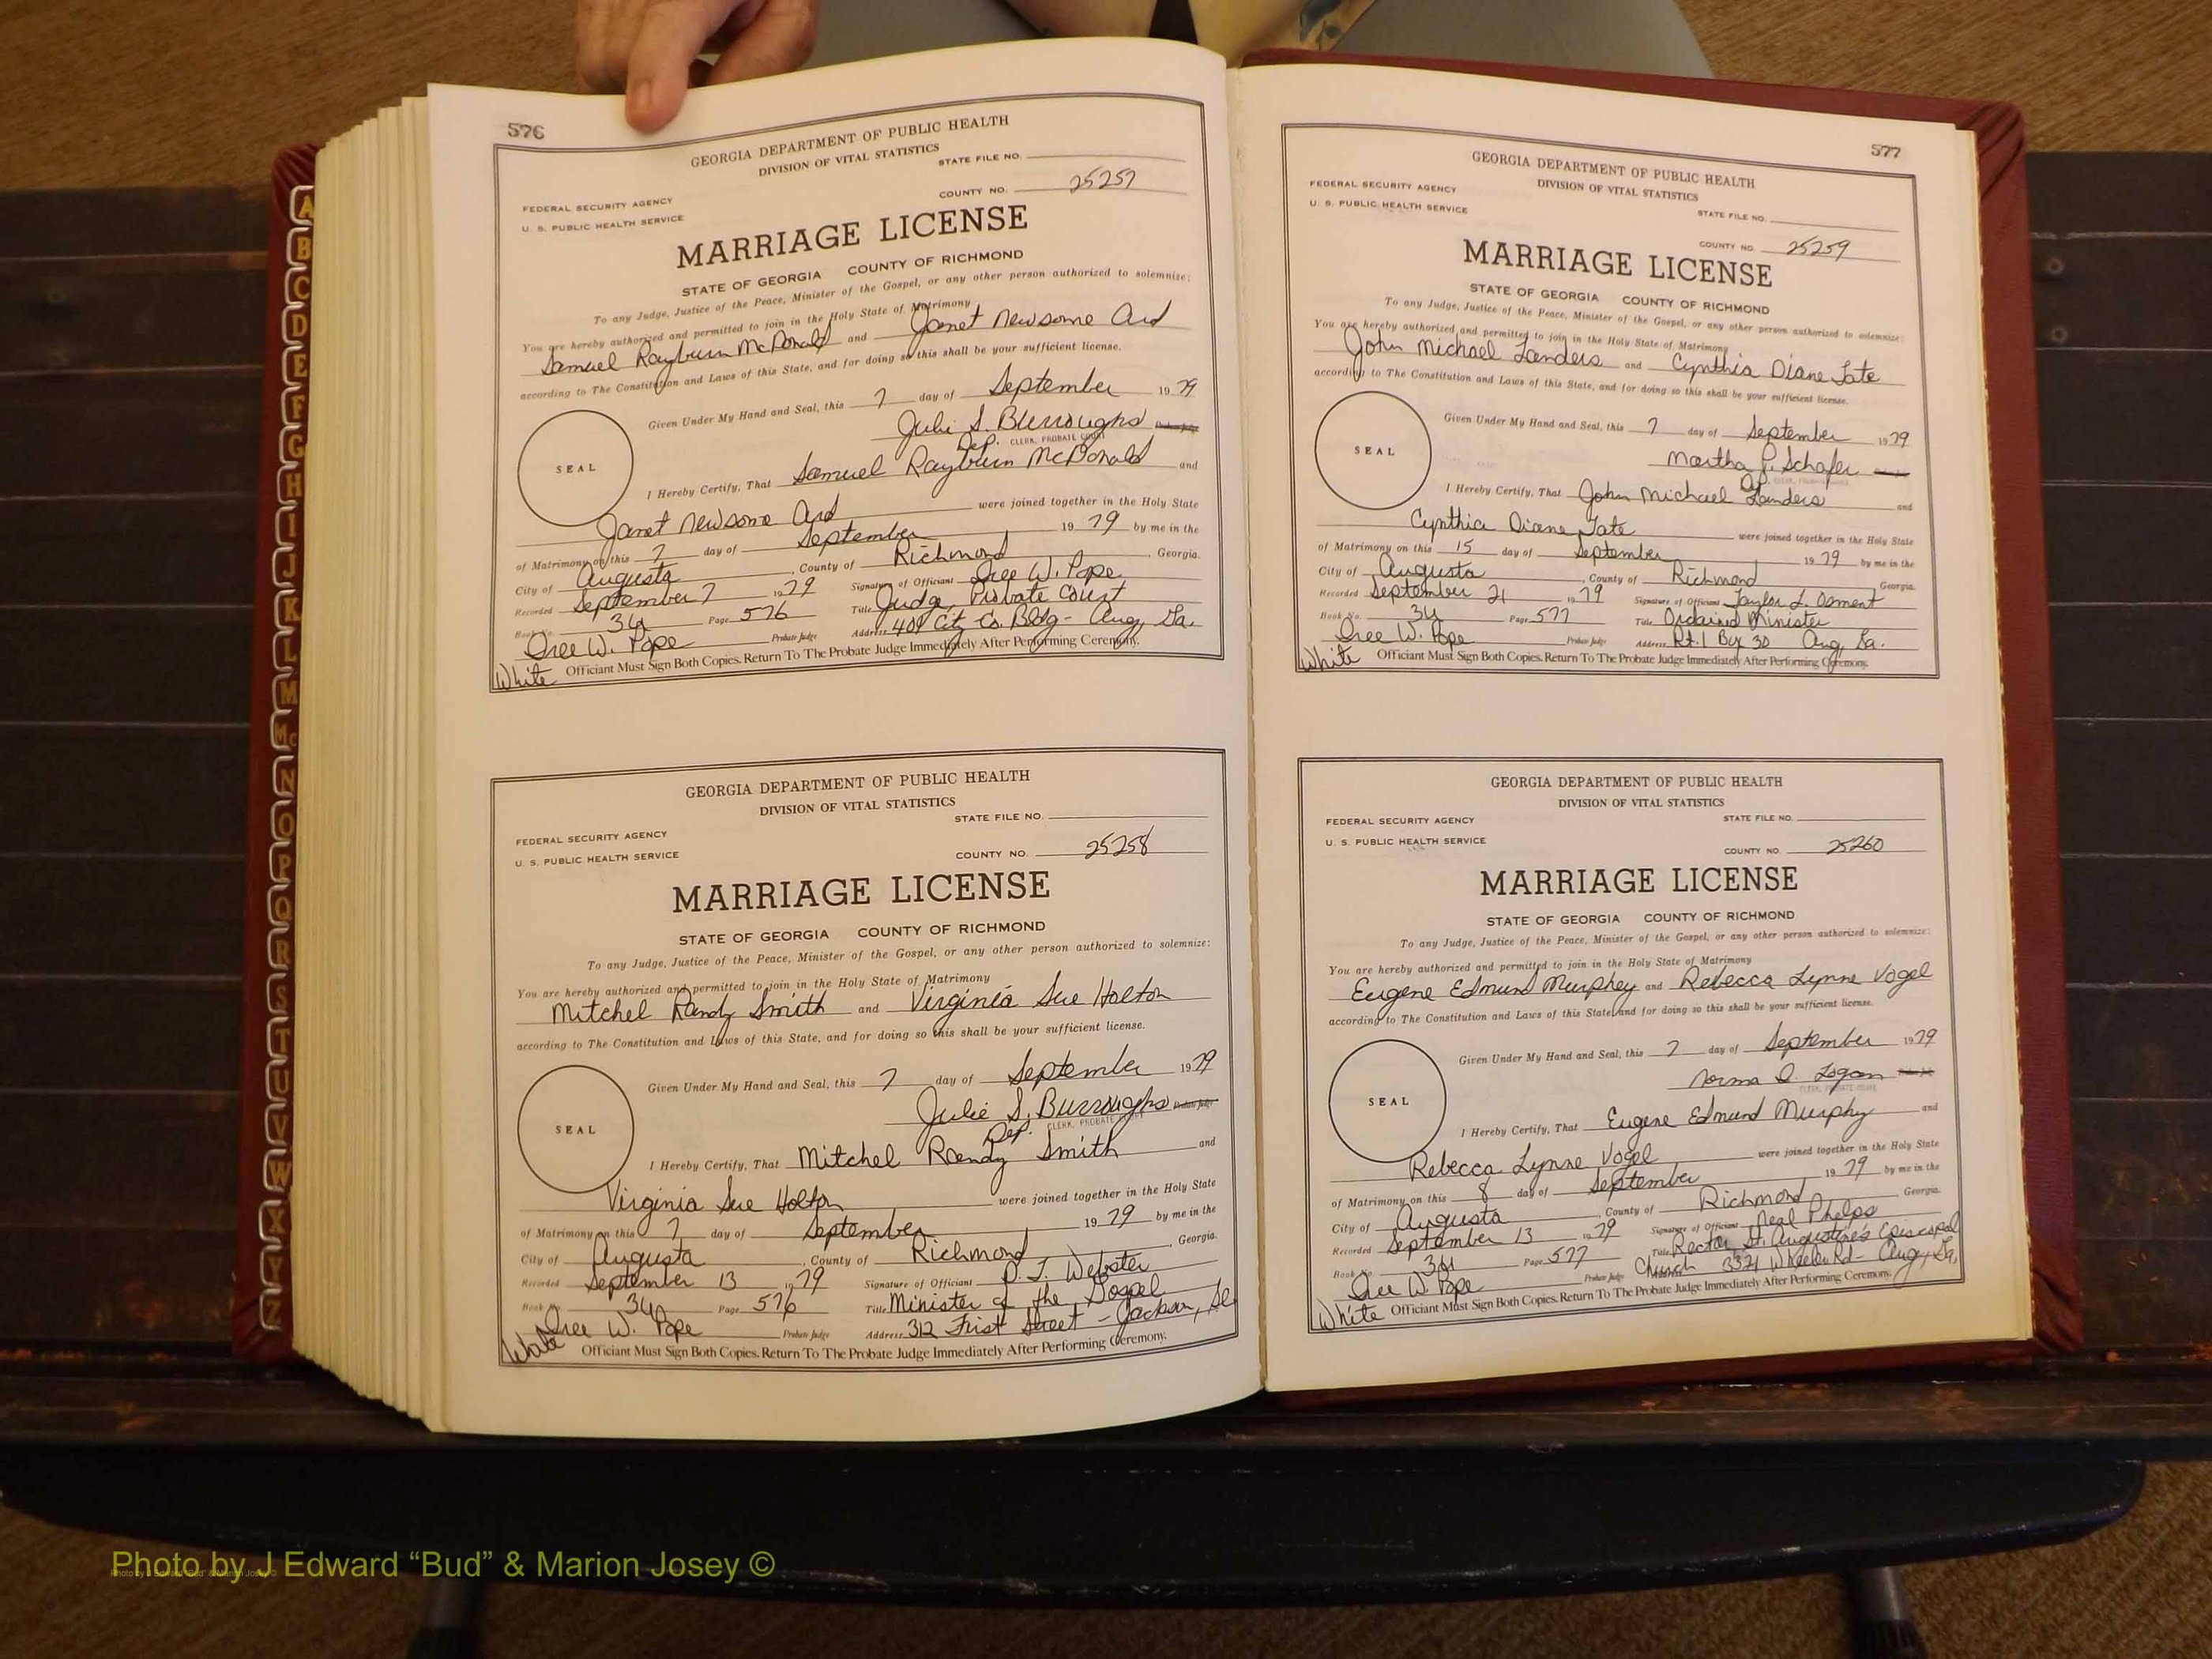 576
GEORGIA DEPARTMENT OF PUBLIC HEALTH
DIVISION OF VITAL STATISTICS
STATE FILE NO.
COUNTY NO. 25257
FEDERAL SECURITY AGENCY
U. S. PUBLIC HEALTH SERVICE
MARRIAGE LICENSE
STATE OF GEORGIA COUNTY OF RICHMOND
To any Judge, Justice of the Peace, Minister of the Gospel, or any other person authorized to solemnize:
You are hereby authorized and permitted to join in the Holy State of Matrimony
Samuel Rayburn McDonald and Janet Newsome Ard
according to The Constitution and Laws of this State, and for doing so this shall be your sufficient license.
Given Under My Hand and Seal, this 7 day of September 1979
Julie S. Burroughs Probate Judge
Dep. CLERK, PROBATE COURT
SEAL
I Hereby Certify, That Samuel Rayburn McDonald and
Janet Newsome Ard were joined together in the Holy State
of Matrimony on this 7 day of September 1979 by me in the
City of Augusta, County of Richmond, Georgia.
Recorded September 7 1979 Signature of Officiant Iree W. Pope
Book No. 34 Page 576 Title Judge, Probate Court
Iree W. Pope Probate Judge Address 401 City Co. Bldg - Aug, Ga.
White Officiant Must Sign Both Copies. Return To The Probate Judge Immediately After Performing Ceremony.
GEORGIA DEPARTMENT OF PUBLIC HEALTH
DIVISION OF VITAL STATISTICS
STATE FILE NO.
FEDERAL SECURITY AGENCY
U. S. PUBLIC HEALTH SERVICE
COUNTY NO. 25258
MARRIAGE LICENSE
STATE OF GEORGIA COUNTY OF RICHMOND
To any Judge, Justice of the Peace, Minister of the Gospel, or any other person authorized to solemnize:
You are hereby authorized and permitted to join in the Holy State of Matrimony
Mitchel Randy Smith and Virginia Sue Holton
according to The Constitution and Laws of this State, and for doing so this shall be your sufficient license.
Given Under My Hand and Seal, this 7 day of September 1979
Julie S. Burroughs Probate Judge
Dep. CLERK, PROBATE COURT
SEAL
I Hereby Certify, That Mitchel Randy Smith and
Virginia Sue Holton were joined together in the Holy State
of Matrimony on this 7 day of September 1979 by me in the
City of Augusta, County of Richmond, Georgia.
Recorded September 13 1979 Signature of Officiant P. J. Webster
Book No. 34 Page 576 Title Minister of the Gospel
Iree W. Pope Probate Judge Address 312 Frist Street - Jackson, Sc
White Officiant Must Sign Both Copies. Return To The Probate Judge Immediately After Performing Ceremony.
577
GEORGIA DEPARTMENT OF PUBLIC HEALTH
DIVISION OF VITAL STATISTICS
FEDERAL SECURITY AGENCY
U. S. PUBLIC HEALTH SERVICE
STATE FILE NO.
COUNTY NO. 25259
MARRIAGE LICENSE
STATE OF GEORGIA COUNTY OF RICHMOND
To any Judge, Justice of the Peace, Minister of the Gospel, or any other person authorized to solemnize:
You are hereby authorized and permitted to join in the Holy State of Matrimony
John Michael Landers and Cynthia Diane Tate
according to The Constitution and Laws of this State, and for doing so this shall be your sufficient license.
Given Under My Hand and Seal, this 7 day of September 1979
Martha P. Schafer
Dp. CLERK, PROBATE COURT
SEAL
I Hereby Certify, That John Michael Landers and
Cynthia Diane Tate were joined together in the Holy State
of Matrimony on this 15 day of September 1979 by me in the
City of Augusta, County of Richmond, Georgia.
Recorded September 21 1979 Signature of Officiant Taylor L. Osment
Book No. 34 Page 577 Title Ordained Minister
Iree W. Pope Probate Judge Address Rt. 1 Box 30 Aug, Ga.
White Officiant Must Sign Both Copies. Return To The Probate Judge Immediately After Performing Ceremony.
GEORGIA DEPARTMENT OF PUBLIC HEALTH
DIVISION OF VITAL STATISTICS
FEDERAL SECURITY AGENCY
U. S. PUBLIC HEALTH SERVICE
STATE FILE NO.
COUNTY NO. 25260
MARRIAGE LICENSE
STATE OF GEORGIA COUNTY OF RICHMOND
To any Judge, Justice of the Peace, Minister of the Gospel, or any other person authorized to solemnize:
You are hereby authorized and permitted to join in the Holy State of Matrimony
Eugene Edmund Murphey and Rebecca Lynne Vogel
according to The Constitution and Laws of this State, and for doing so this shall be your sufficient license.
Given Under My Hand and Seal, this 7 day of September 1979
Norma D. Logan
CLERK, PROBATE COURT
SEAL
I Hereby Certify, That Eugene Edmund Murphy and
Rebecca Lynne Vogel were joined together in the Holy State
of Matrimony on this 8 day of September 1979 by me in the
City of Augusta, County of Richmond, Georgia.
Recorded September 13 1979 Signature of Officiant Neal Phelps
Book No. 34 Page 577 Title Rector St. Augustine's Episcopal
Iree W. Pope Probate Judge Church 3321 Wheeler Rd - Aug, Ga,
White Officiant Must Sign Both Copies. Return To The Probate Judge Immediately After Performing Ceremony.
A
B
C
D
E
F
G
H
I
J
K
L
M
Mc
N
O
P
Q
R
S
T
U
V
W
X
Y
Z
Photo by J Edward “Bud” & Marion Josey ©
Photo by J Edward "Bud" & Marion Josey ©